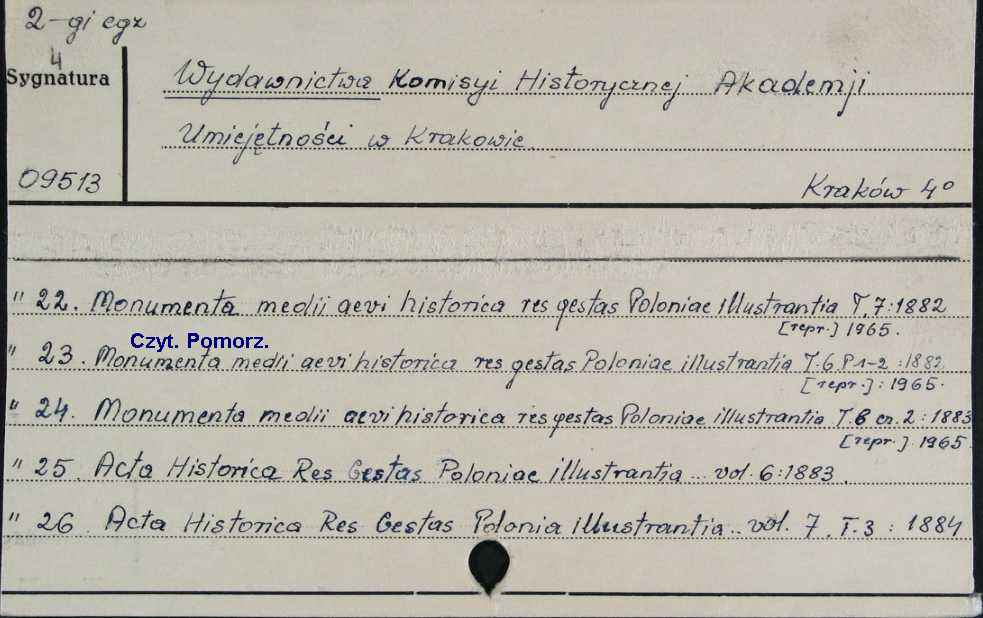 2-gi egz
4
Sygnatura
Wydawnictwa Komisyi Historycznej Akademji
Umiejętności w Krakowie
09513
Kraków 4°
" 22. Monumenta medii aevi historica res gestas Poloniae illustrantia T. 7:1882
[repr.] 1965.
Czyt. Pomorz.
" 23. Monumenta medii aevi historica res gestas Poloniae illustrantia T.6 P 1-2:1882
[repr.]: 1965.
" 24. Monumenta medii aevi historica res gestas Poloniae illustrantia T.6 cz. 2:1883
[repr.] 1965.
" 25. Acta Historica Res Gestas Poloniae illustrantia... vol. 6:1883.
" 26. Acta Historica Res Gestas Polonia illustrantia.. vol. 7. T.3 : 1884